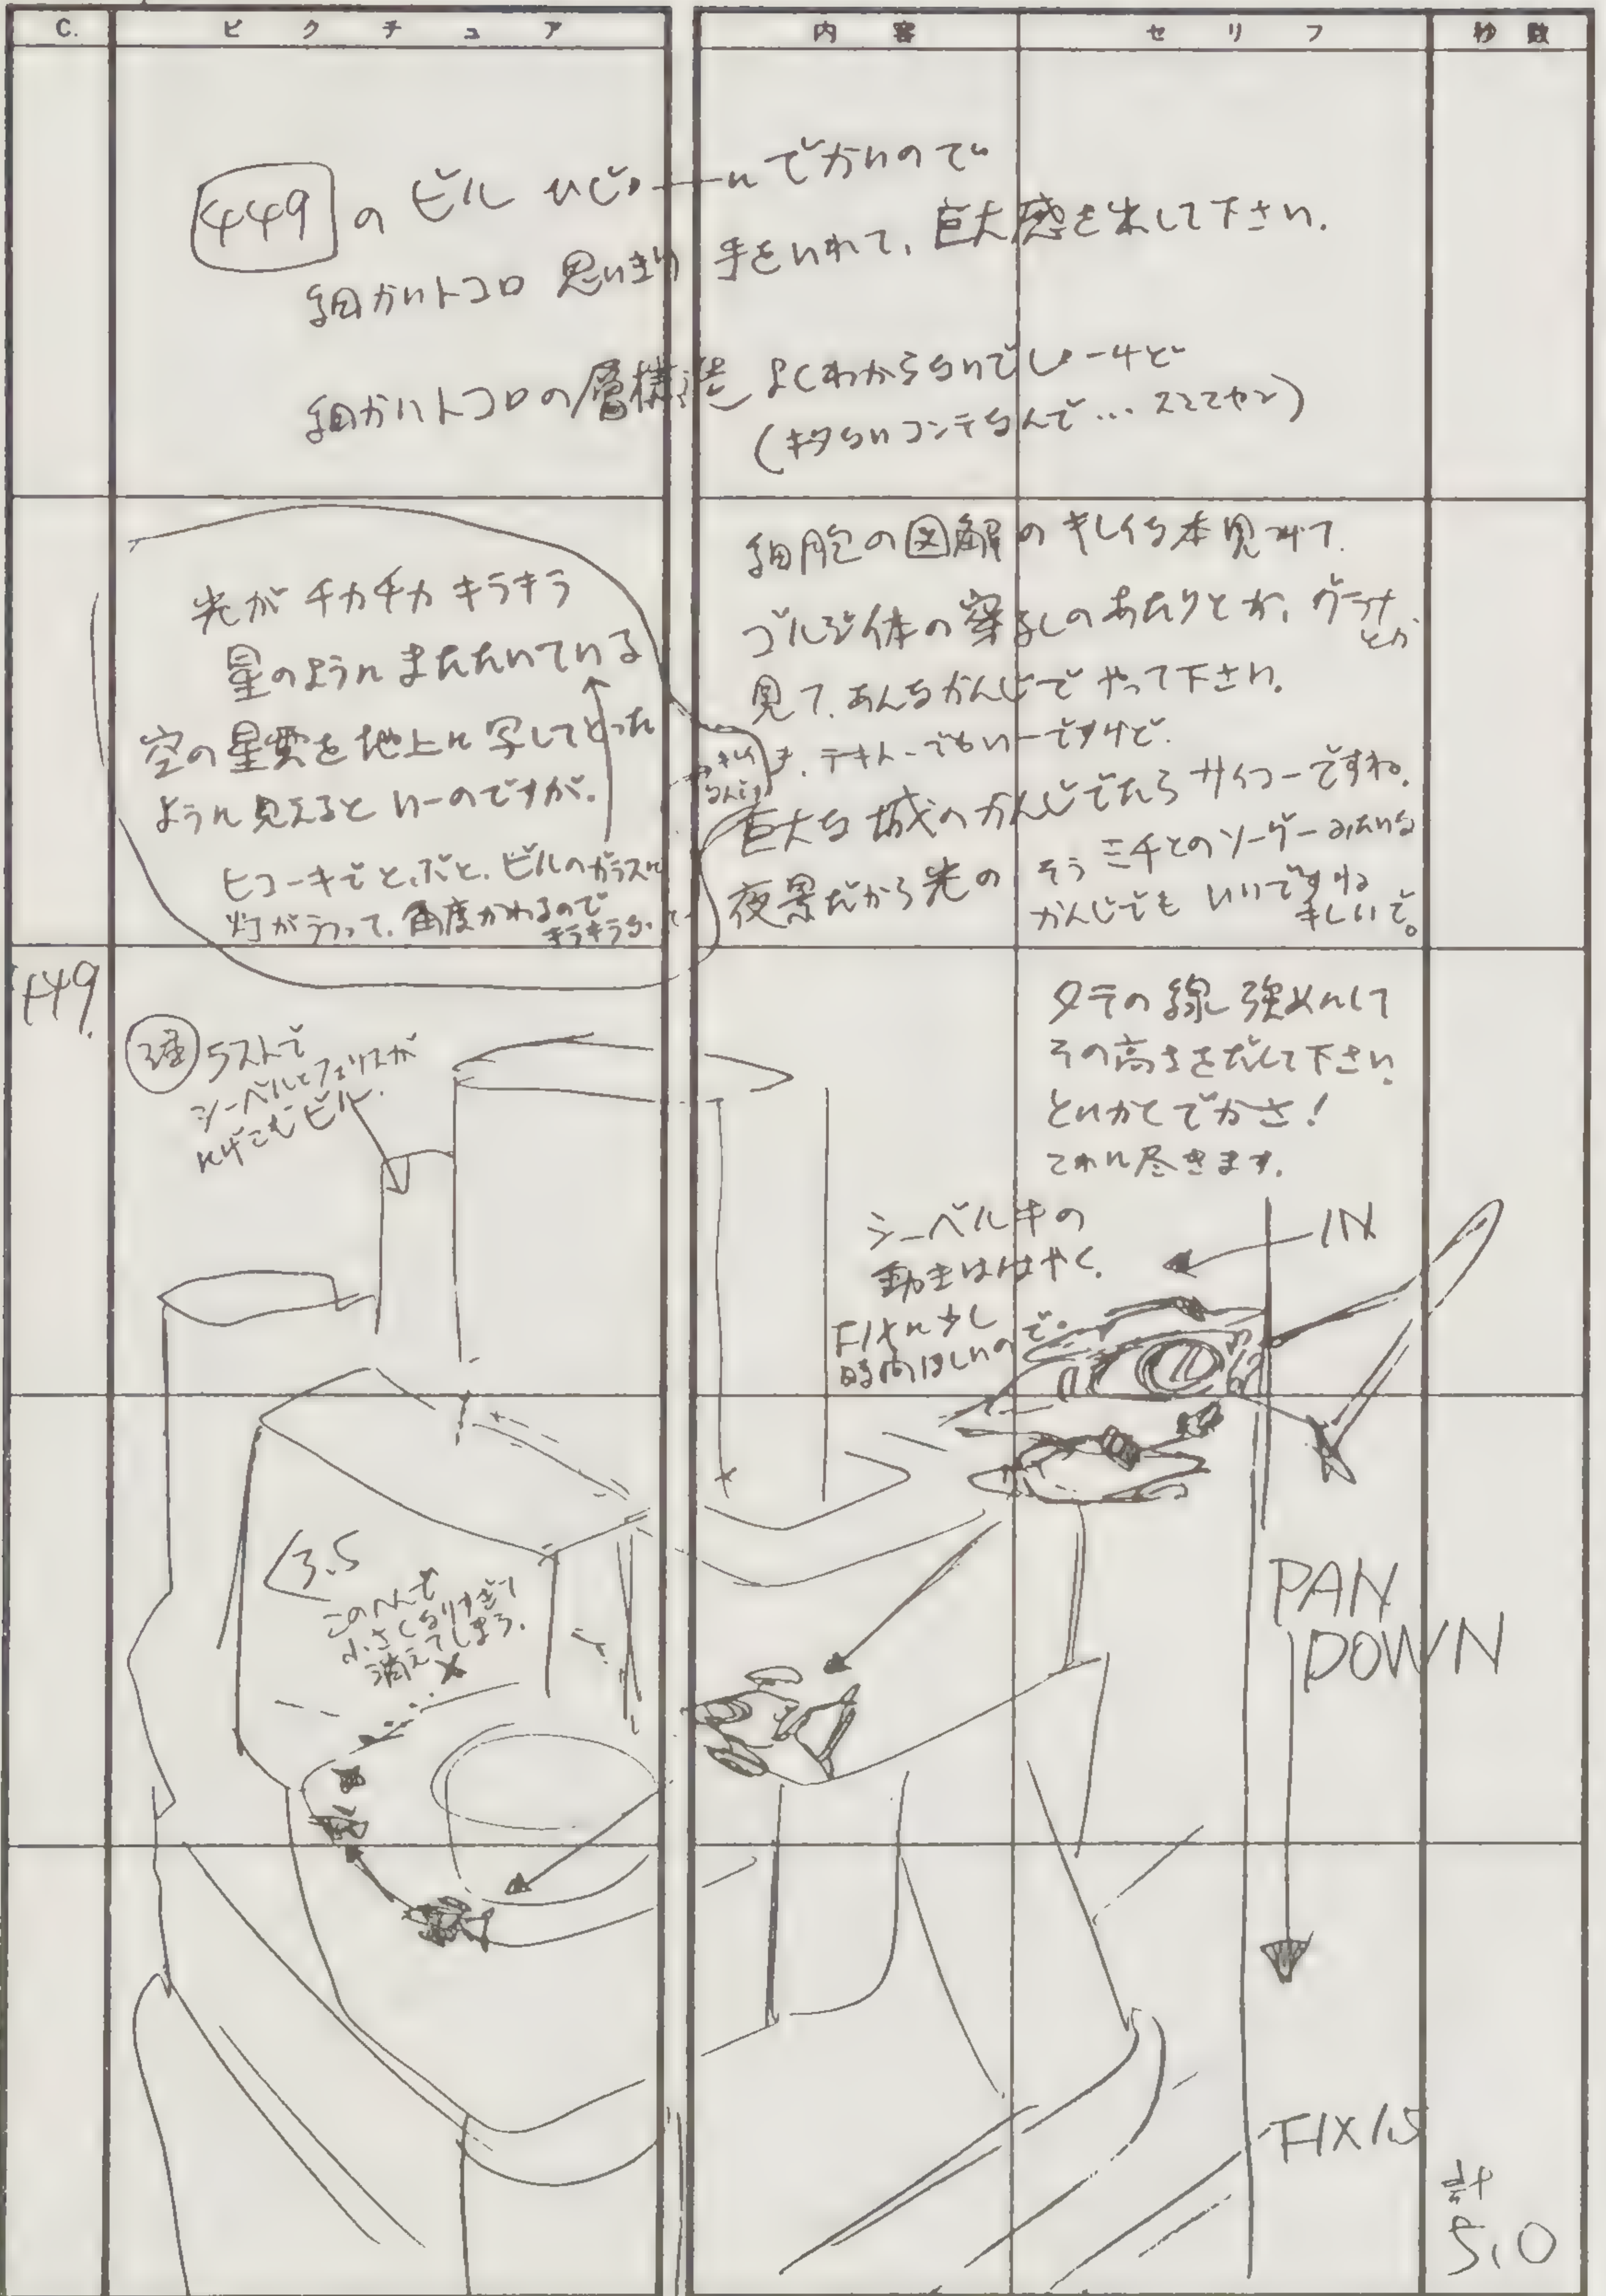 C.
ピクチュア
内容
セリフ
秒数
449 のビル ひじょーにでかいので
細かいトコロ 思いきり 手をいれて、巨大感を出して下さい.
細かいトコロの層構造 よくわからないでしょーけど
(キタないコンテなんで… スミマセン)
光がチカチカ キラキラ
星のように またたいている
空の星雲を地上に写してとった
ように見えると いーのですが.
ヒコーキでとぶと、ビルのガラスに
灯がうつって、角度かわるので
キラキラ
細胞の図解の キレイな本見つけて.
ゴルジ体の
のあたりとか、グラナ
とか
見て、あんなかんじで やって下さい.
テキトーでもいーですけど.
巨大な城のかんじでたら サイコーですね.
夜景だから光の
そう 三千とのソーゲーみたいな
かんじでも いいですね
キレイで。
449.
ラストで
シーベルとフェリスが
にげこむビル.
タテの線 強めにして
その高さをだして下さい
とにかくでかさ!
これに尽きます.
シーベル キの
動きははやく.
FIXに少し
時間ほしいので。
IN
3.5
このへんで
小さくなりすぎて
消えてしまう.
PAN
DOWN
FIX 1.5
計
5.0